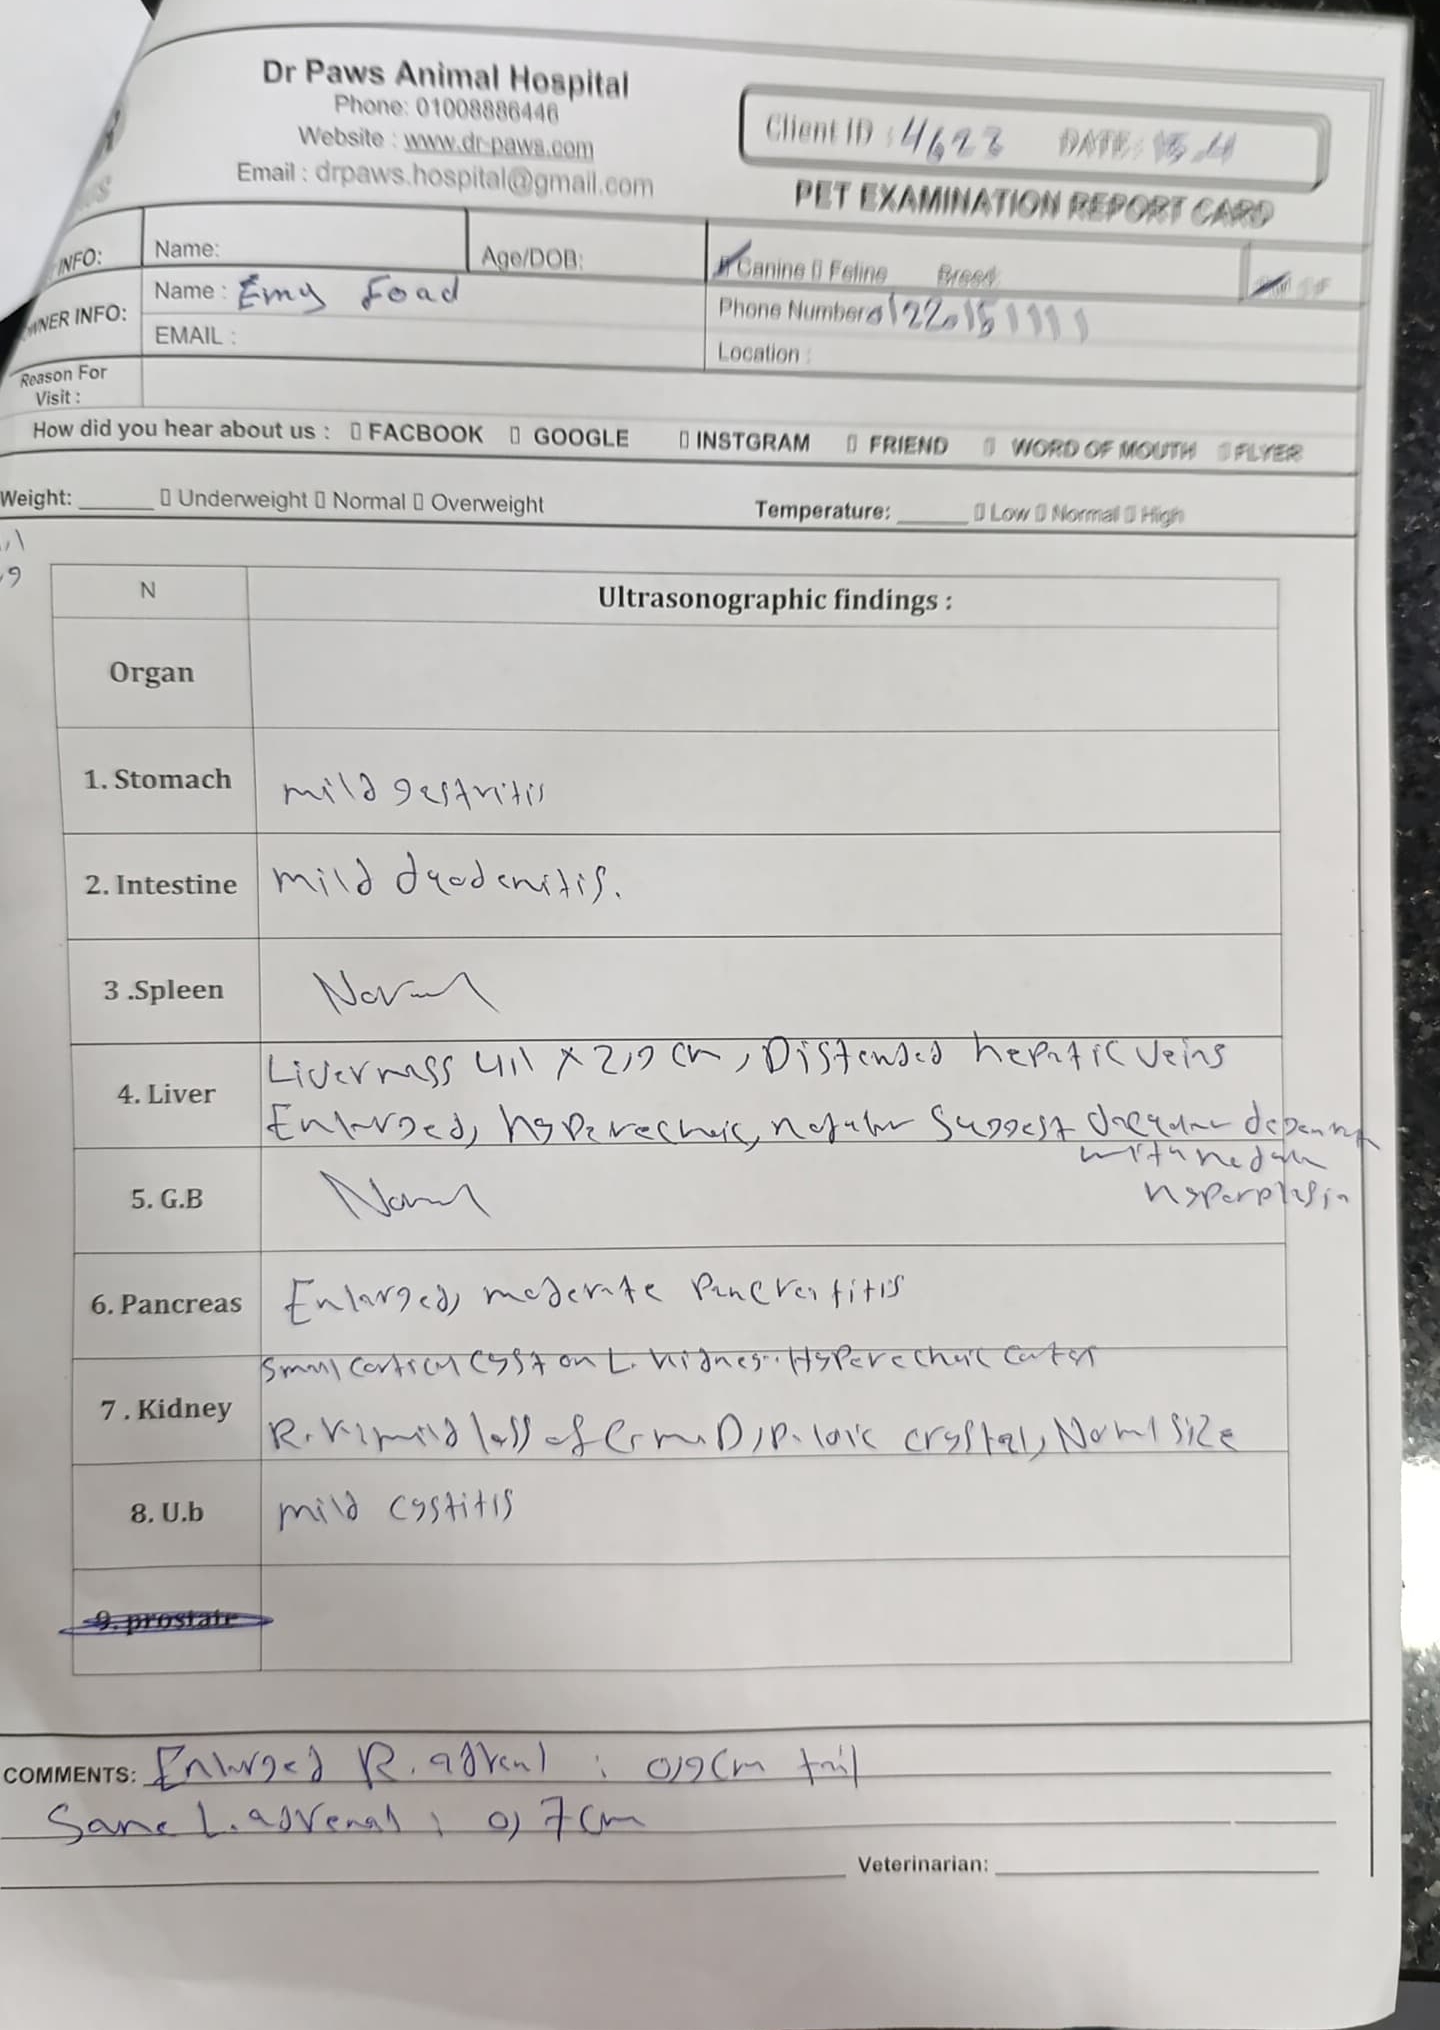 Dr Paws Animal Hospital
Phone: 01008886446
Website : www.dr-paws.com
Email : drpaws.hospital@gmail.com
Client ID : 4623 DATE: 15.4
PET EXAMINATION REPORT CARD
INFO: Name: Age/DOB: Canine Feline Breed:
NER INFO: Name : Emy Foad Phone Number
EMAIL : Location :
Reason For
Visit :
How did you hear about us : FACBOOK GOOGLE INSTGRAM FRIEND WORD OF MOUTH FLYER
Weight: Underweight Normal Overweight Temperature: Low Normal High
N Ultrasonographic findings :
Organ
1. Stomach mild gastritis
2. Intestine mild duodenitis.
3 .Spleen Normal
4. Liver Liver mass 4,1 x 2,9 cm, Distended hepatic veins
Enlarged, hyperechoic, suggest
with
hyperplasia
5. G.B Normal
6. Pancreas Enlarged, moderate Pancreatitis
7 . Kidney Small cortical cyst on L. kidney. Hyperechoic cortex
R.K mild loss of C.M.D, crystal, Normal size
8. U.b mild cystitis
9. prostate
COMMENTS: Enlarged R. adrenal : 0,9 cm tail
Same L. adrenal : 0,7 cm
Veterinarian: